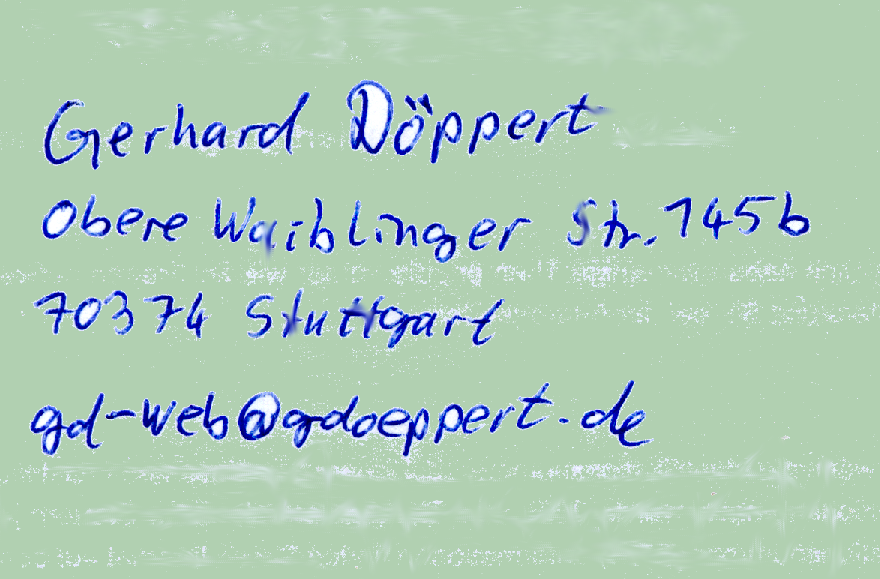 Gerhard Döppert
Obere Waiblinger Str. 145b
70374 Stuttgart
gd-web@gdoeppert.de